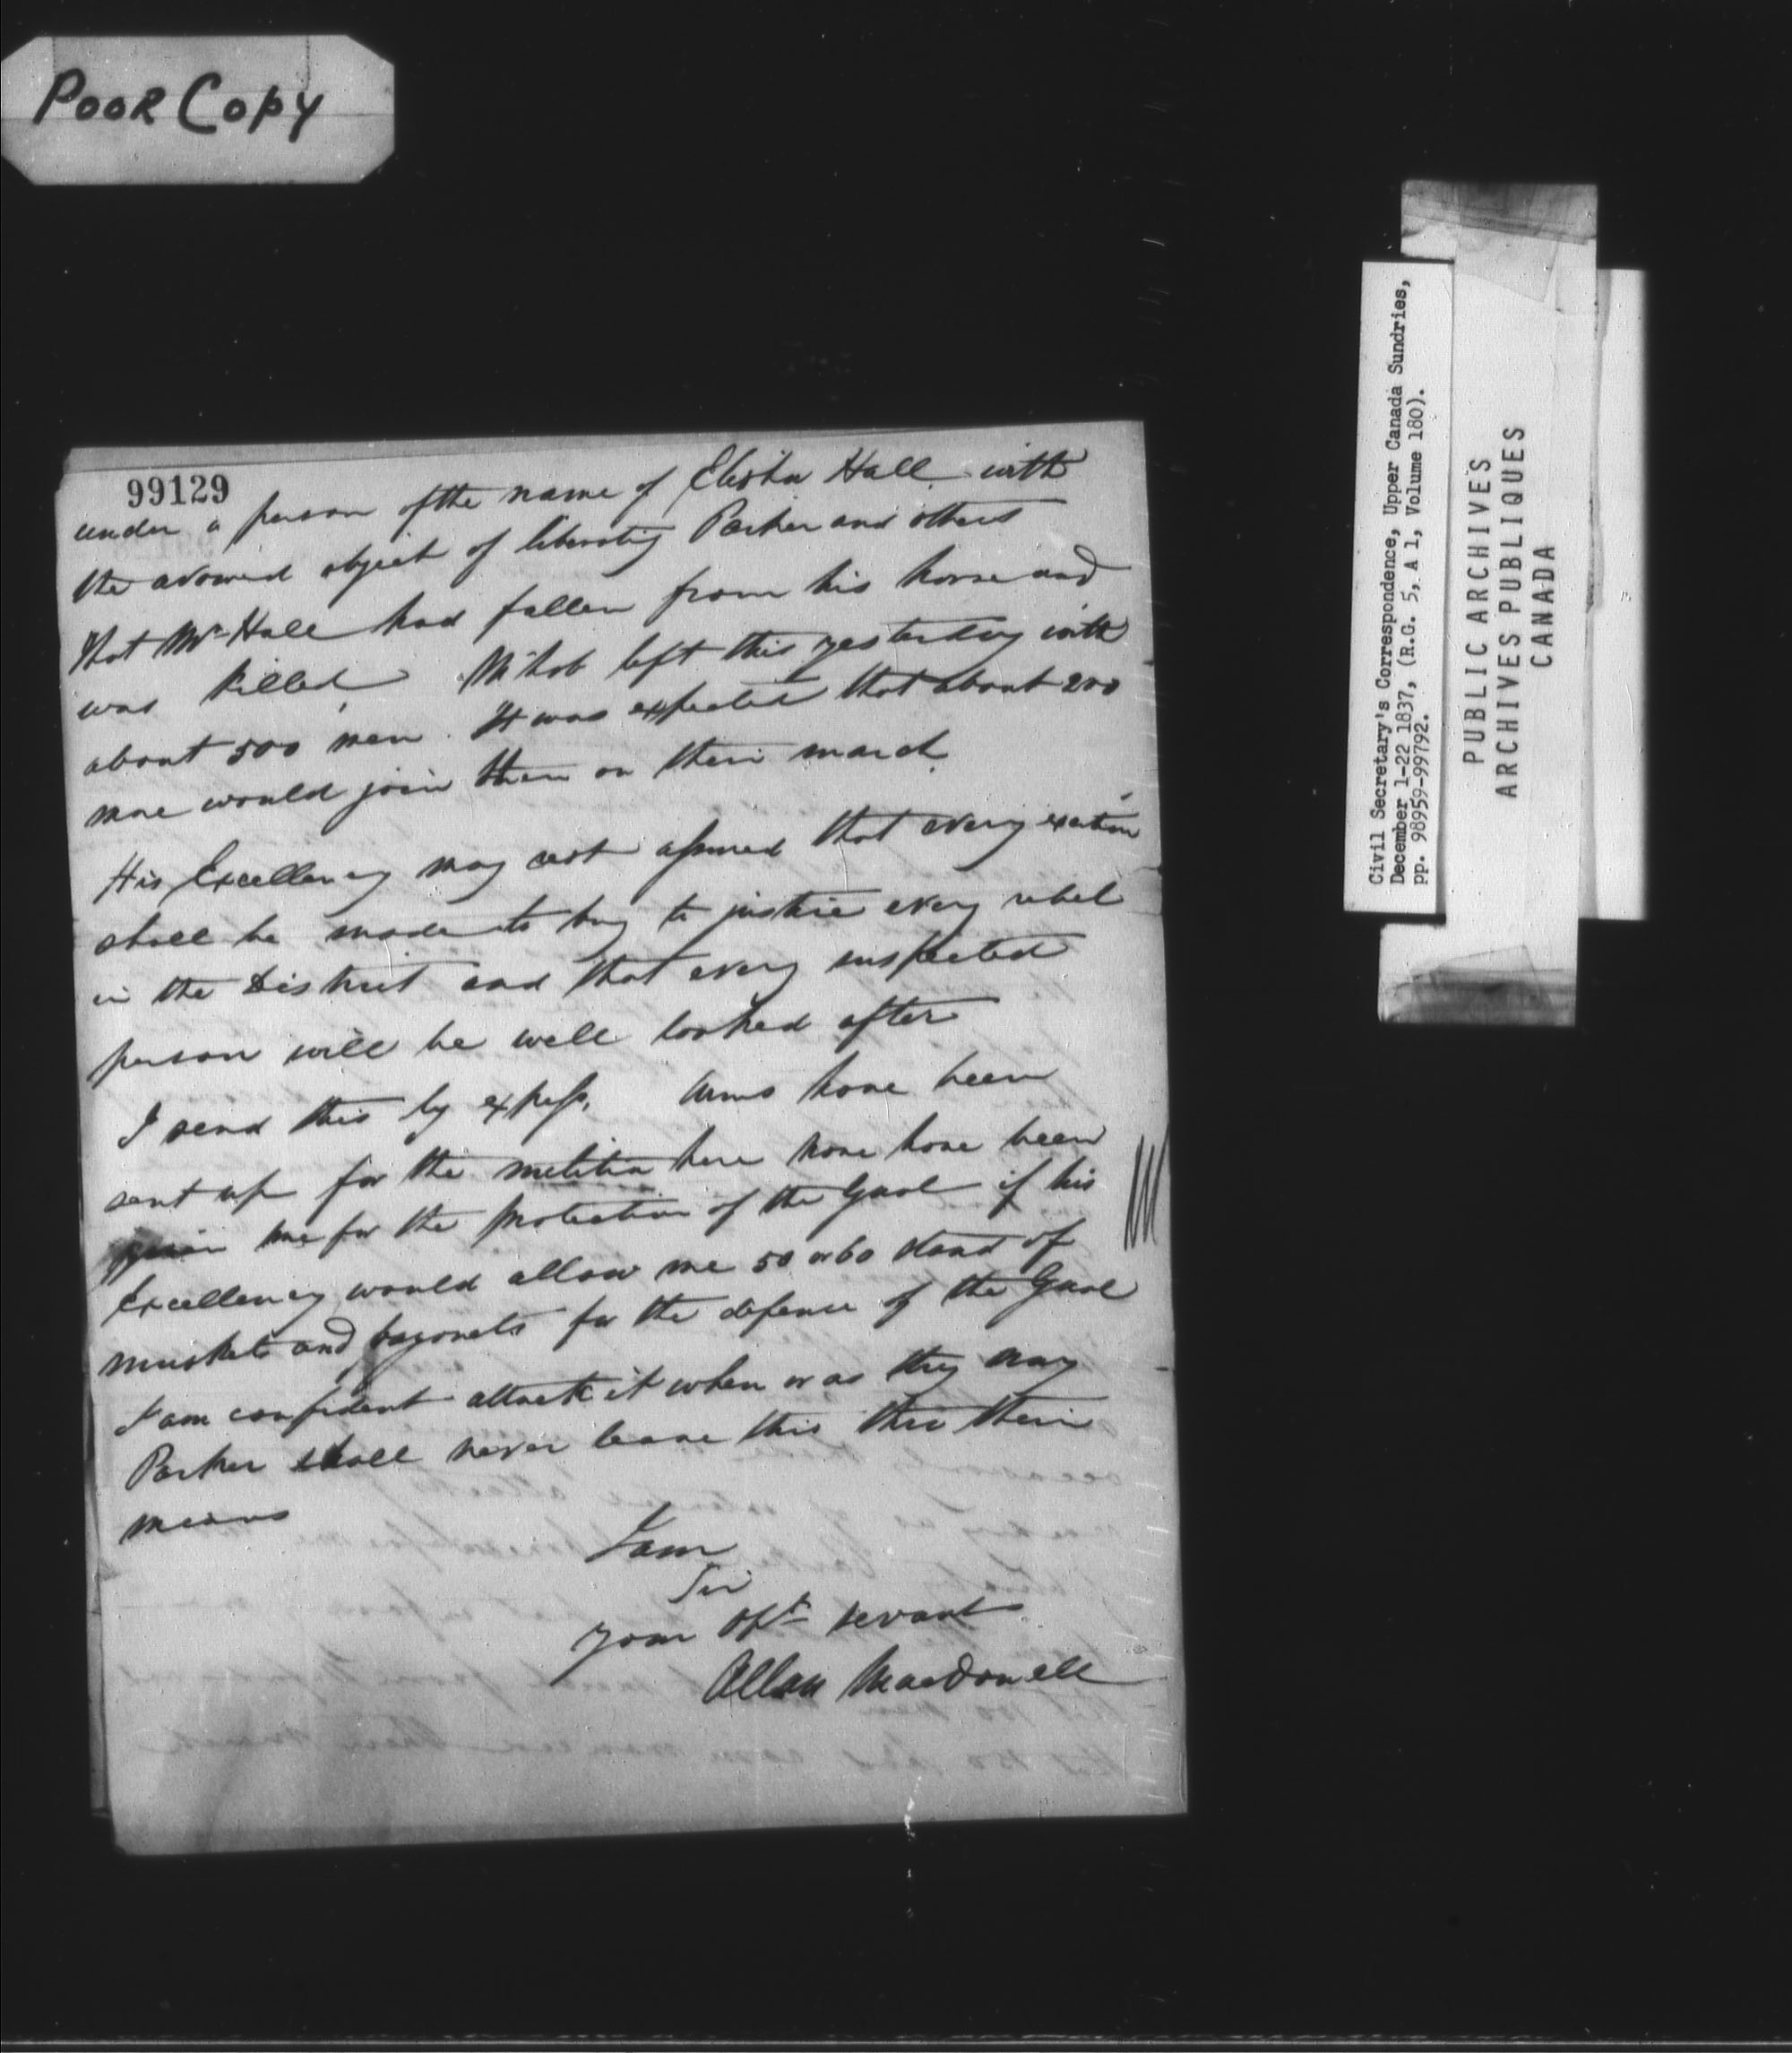 POOR COPY
99129
under a person of the name of Elisha Hall with
the avowed object of liberating Parker and others
that Mr Hall had fallen from his horse and
was killed McNab left this yesterday with
about 500 men. It was expected that about 200
more would join them on their march.
His Excellency may rest assured that every exertion
shall be made to bring to justice every rebel
in the District and that every suspected
person will be well looked after
I send this by express. Arms have been
sent up for the militia here none have been
given me for the protection of the Gaol if his
Excellency would allow me 50 or 60 stand of
muskets and bayonets for the defence of the Gaol
I am confident attack it when or as they may
Parker shall never leave this thro their
means
I am
Sir
your Obt servant
Allan Macdonell
Civil Secretary's Correspondence, Upper Canada Sundries,
December 1-22 1837, (R.G. 5, A 1, Volume 180).
pp. 98959-99792.
PUBLIC ARCHIVES
ARCHIVES PUBLIQUES
CANADA